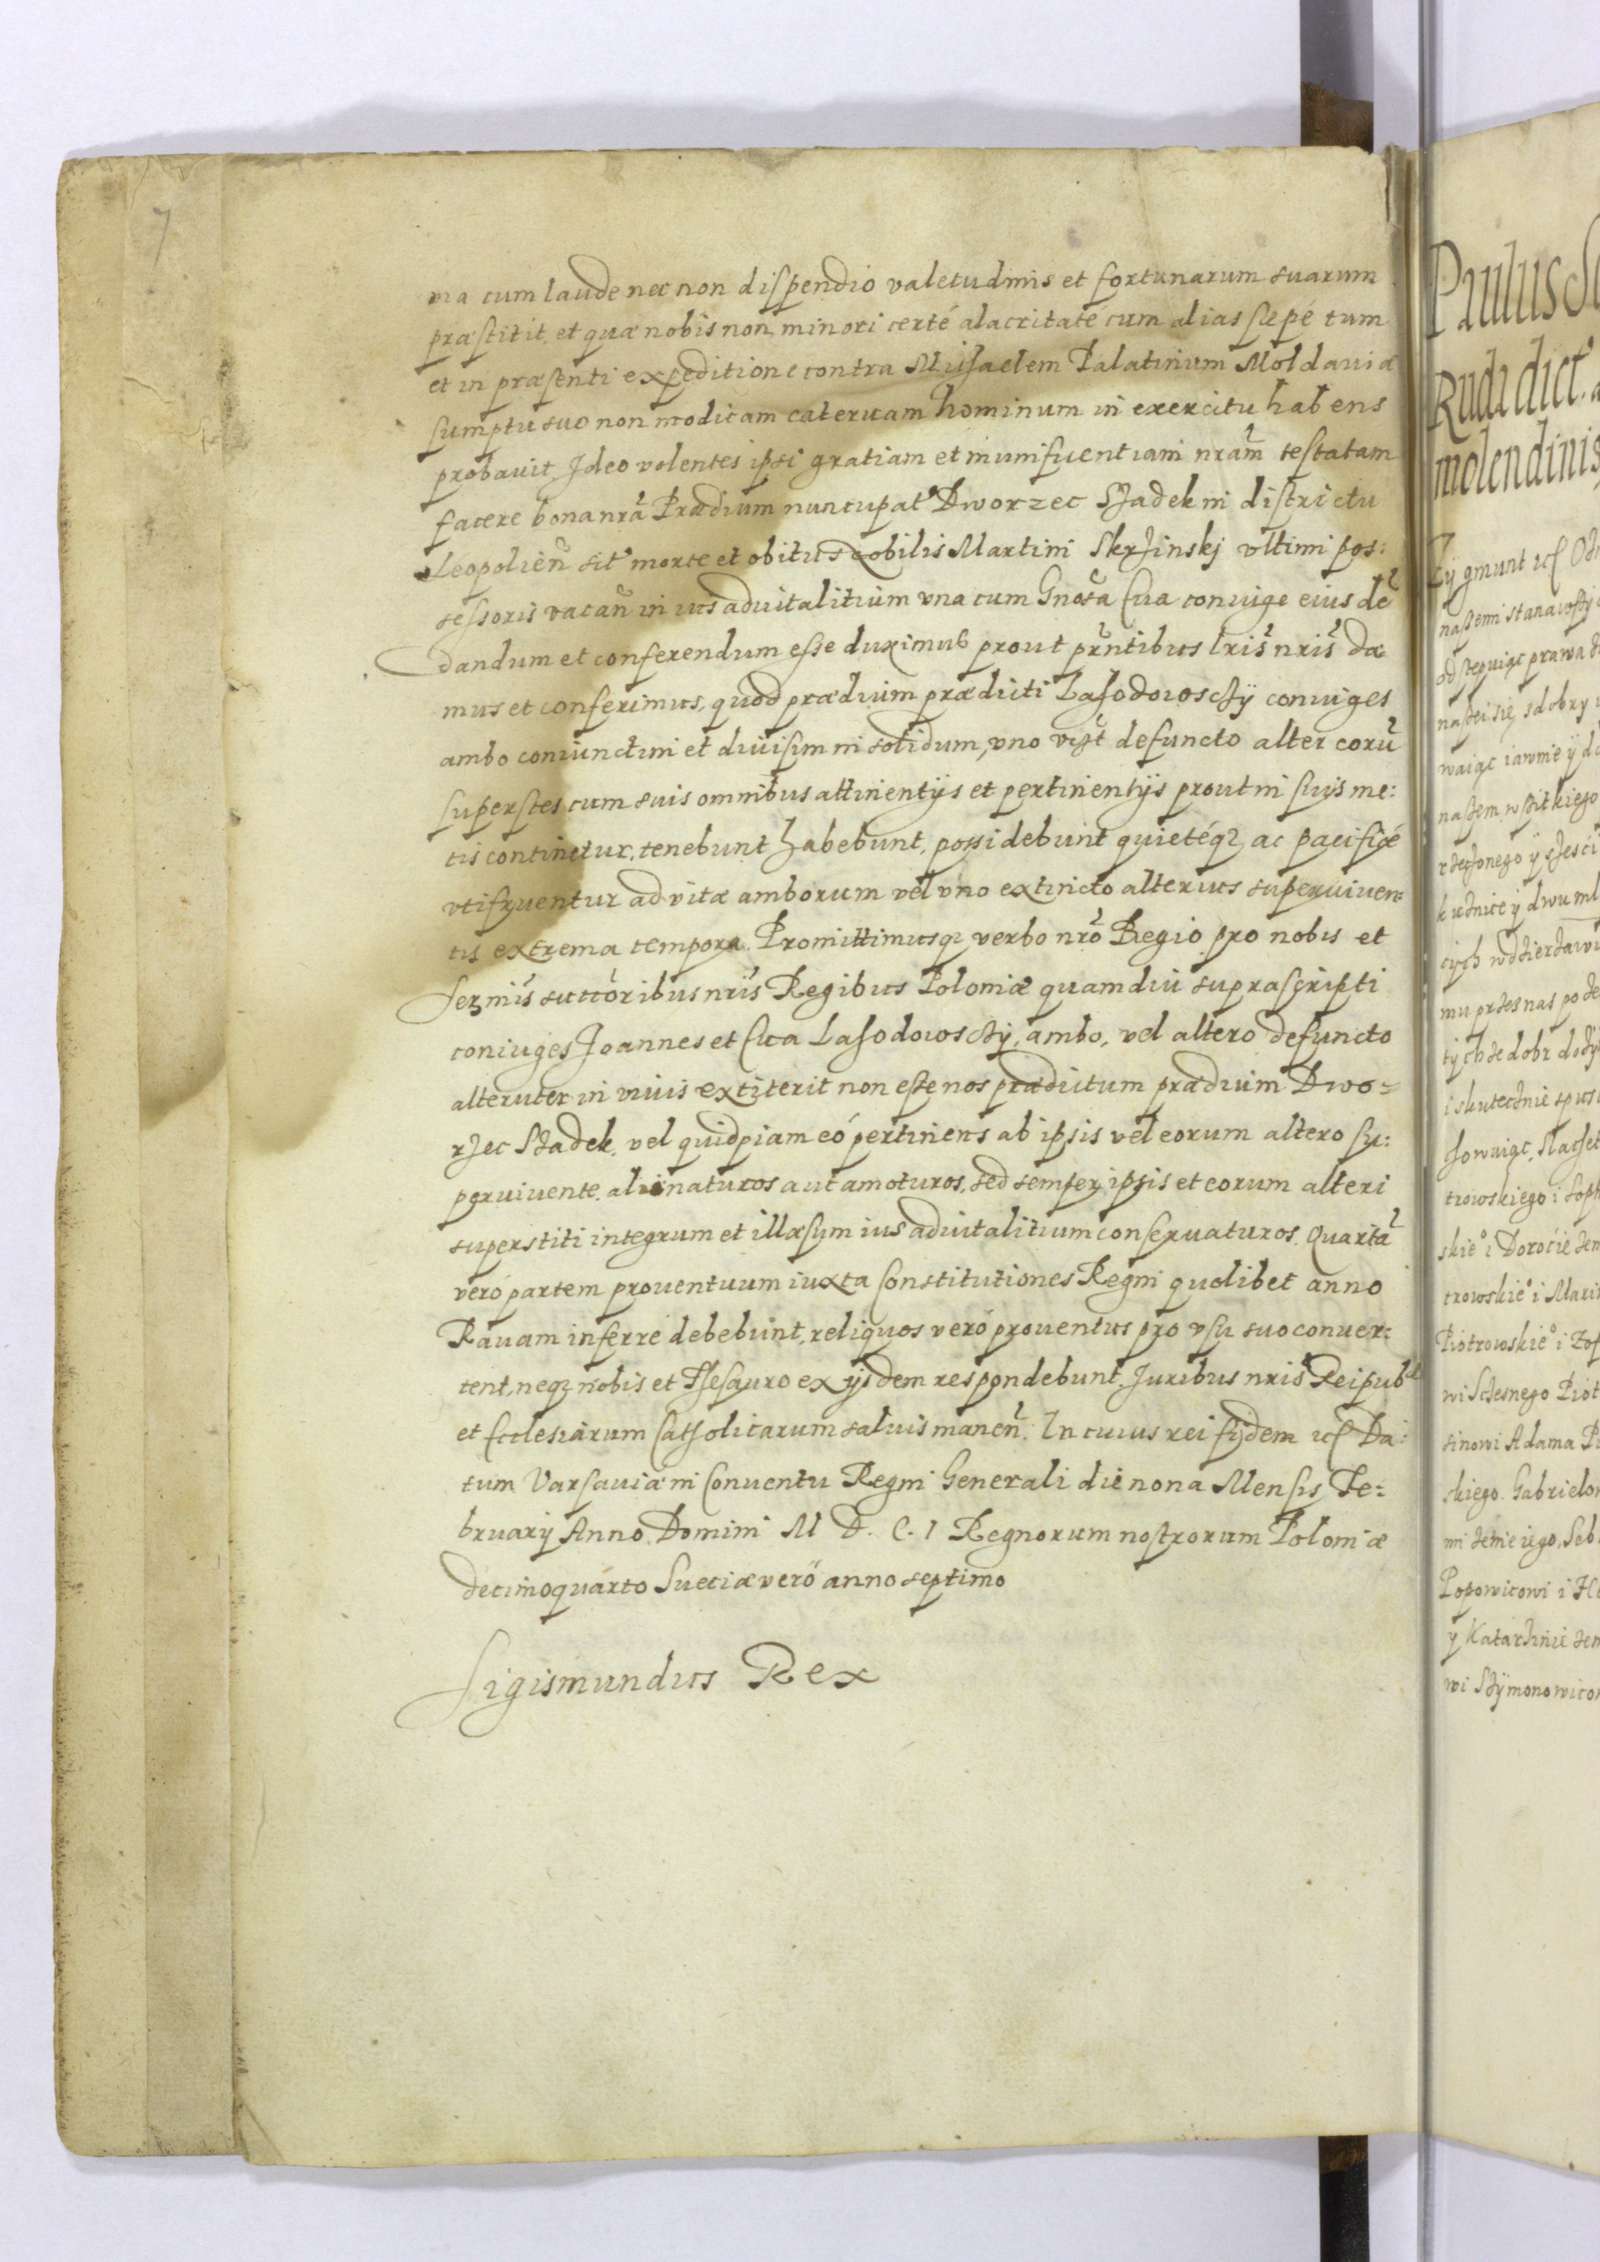 7
ma cum laude nec non dispendio valetudinis et fortunarum suarum
præstitit, et quæ nobis non minori certé alacritaté cum alias sæpé tum
et in præsenti expeditione contra Michaelem Palatinum Moldaviæ
sumptu suo non modicam catervam hominum in exercitu habens
probavit. Ideo volentes ipsi gratiam et munificentiam nram̃ testatam
facere bona nrã Prædium nuncupat Dworzec Szadek in districtu
Leopolien̄ sit morte et obitu Nobilis Martini Skrzinskj vltimi pos:
sessoris vacan̄ in ius aduitalitium vna cum Gnosã Eua coniuge eius dẽ
dandum et conferendum esse duximus prout pr̃ntibus lris̃ nris̃ da
mus et conferimus, quod prædium prædicti Lasodowscÿ coniuges
ambo coniunctim et diuisim in solidum, vno vizt̃ defuncto alter eorũ
superstes cum suis omnibus attinentijs et pertinentijs prout in suis me:
tis continetur, tenebunt habebunt, possidebunt quietéqz ac pacificé
vtifruentur ad vitæ amborum vel vno extincto alterius superuiuen=
tis extrema tempora. Promittimusqz verbo nrõ Regio pro nobis et
Sermis̃ succoribus nris̃ Regibus Poloniæ quamdiu suprascripti
coniuges Joannes et Eua Lasodowscÿ, ambo, vel altero defuncto
alteruter in viuis extiterit non esse nos prædictum prædium Dwo=
rzec Szadek, vel quidpiam eó pertinens ab ipsis vel eorum altero su:
peruiuente, alienaturos aut amoturos, sed semper ipsis et eorum alteri
superstiti integrum et illæsum ius aduitalitium conseruaturos. Quartã
veró partem prouentuum iuxta Constitutiones Regni quolibet anno
Rauam inferre debebunt, reliquos veró prouentus pro vsu suo conuer:
tent, neqz nobis et Thesauro ex ijsdem respondebunt. Juribus nris̃ Reipub
et Ecclesiarum Catholicarum saluis manen̄. In cuius rei fidem etc Da:
tum Varsauiæ in Conuentu Regni Generali die nona Mensis Fe:
bruarij Anno Domini M D. C. I Regnorum nostrorum Poloniæ
decimoquarto Sueciæ veró anno septimo
Sigismundus Rex
Paulus
Rudi dict
molendinis
Zÿgmunt etc
od stepuiąc prawa
naszei się s dobry
waiąc iawnie ÿ
naszem wszitkiego
rzeczonego ÿ
kuźnice ÿ dwu
mu przes nas
tych ze dobr
i skutecznie
trowskiego i
skie i Dorocie
trowskie i
Piotrowskie i
wi Sczesnego
sinowi Adama
skiego. Gabrielo
mi żenie iego,
Popowicowi i
y Katarzinie
wi Szÿmonowico